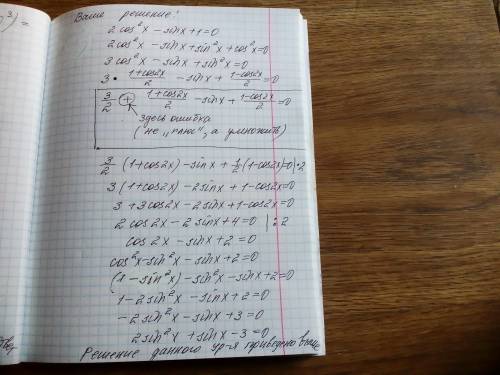 3) =
Ваше решение:
2cos²x - sinx + 1 = 0
2cos²x - sinx + sin²x + cos²x = 0
3cos²x - sinx + sin²x = 0
3 • (1+cos2x)/2 - sinx + (1-cos2x)/2 = 0
3/2 + (1+cos2x)/2 - sinx + (1-cos2x)/2 = 0
здесь ошибка
(не "плюс", а умножить)
3/2 (1+cos2x) - sinx + 1/2 (1-cos2x) = 0 | •2
3(1+cos2x) - 2sinx + 1-cos2x = 0
3 + 3cos2x - 2sinx + 1-cos2x = 0
2cos2x - 2sinx + 4 = 0 | :2
cos2x - sinx + 2 = 0
cos²x - sin²x - sinx + 2 = 0
(1 - sin²x) - sin²x - sinx + 2 = 0
1 - 2sin²x - sinx + 2 = 0
-2sin²x - sinx + 3 = 0
2sin²x + sinx - 3 = 0
Решение данного ур-я приведено выше